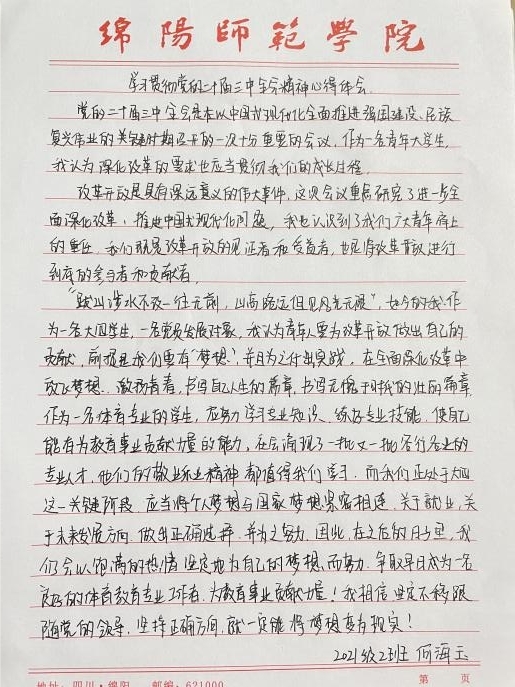 绵阳师范学院
学习贯彻党的二十届三中全会精神心得体会
党的二十届三中全会是在以中国式现代化全面推进强国建设、民族
复兴伟业的关键时期召开的一次十分重要的会议，作为一名青年大学生，
我认为深化改革的要求也应当贯彻我们的成长过程。
改革开放是具有深远意义的伟大事件，这次会议重点研究了进一步全
面深化改革、推进中国式现代化问题，我也认识到了我们广大青年肩上
的重任，我们既是改革开放的见证者和受益者，也是将改革开放进行
到底的参与者和贡献者。
“跋山涉水不改一往无前，山高路远但见风光无限”，如今的我，作
为一名大四学生，一名党员发展对象，我认为青年人要为改革开放做出自己的
贡献，前提是我们要有“梦想”，并且为之付出实践，在全面深化改革中
放飞梦想、激扬青春，书写自己人生的篇章，书写无愧于时代的壮丽篇章。
作为一名体育专业的学生，应努力学习专业知识、练好专业技能，使自己
能有为教育事业贡献力量的能力，社会涌现了一批又一批各行各业的
专业人才，他们的敬业乐业精神都值得我们学习，而我们正处于大四
这一关键阶段，应当将个人梦想与国家梦想紧密相连，关于就业，关
于未来发展方向，做出正确选择，并为之努力。因此，在之后的日子里，我
们会以饱满的热情坚定地为自己的梦想而努力，争取早日成为一名
良好的体育教育专业工作者，为教育事业贡献力量！我相信，坚定不移跟
随党的领导，坚持正确方向，就一定能将梦想变为现实！
2021级2班 何海玉
地址：四川·绵阳 邮编：621000 第 页